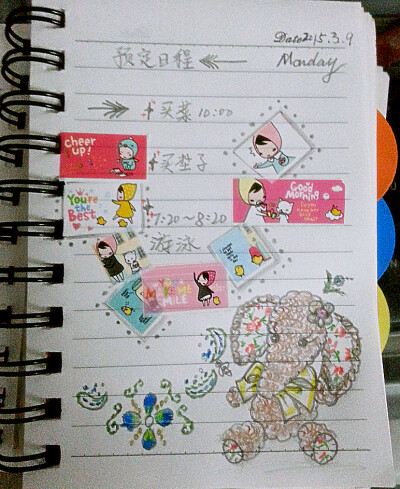 Date 2015.3.9
预定日程
Monday
买菜 10:00
cheer up!
买垫子
You're the Best
Good Morning
7:20~8:20
游泳
MAKE ME SMILE